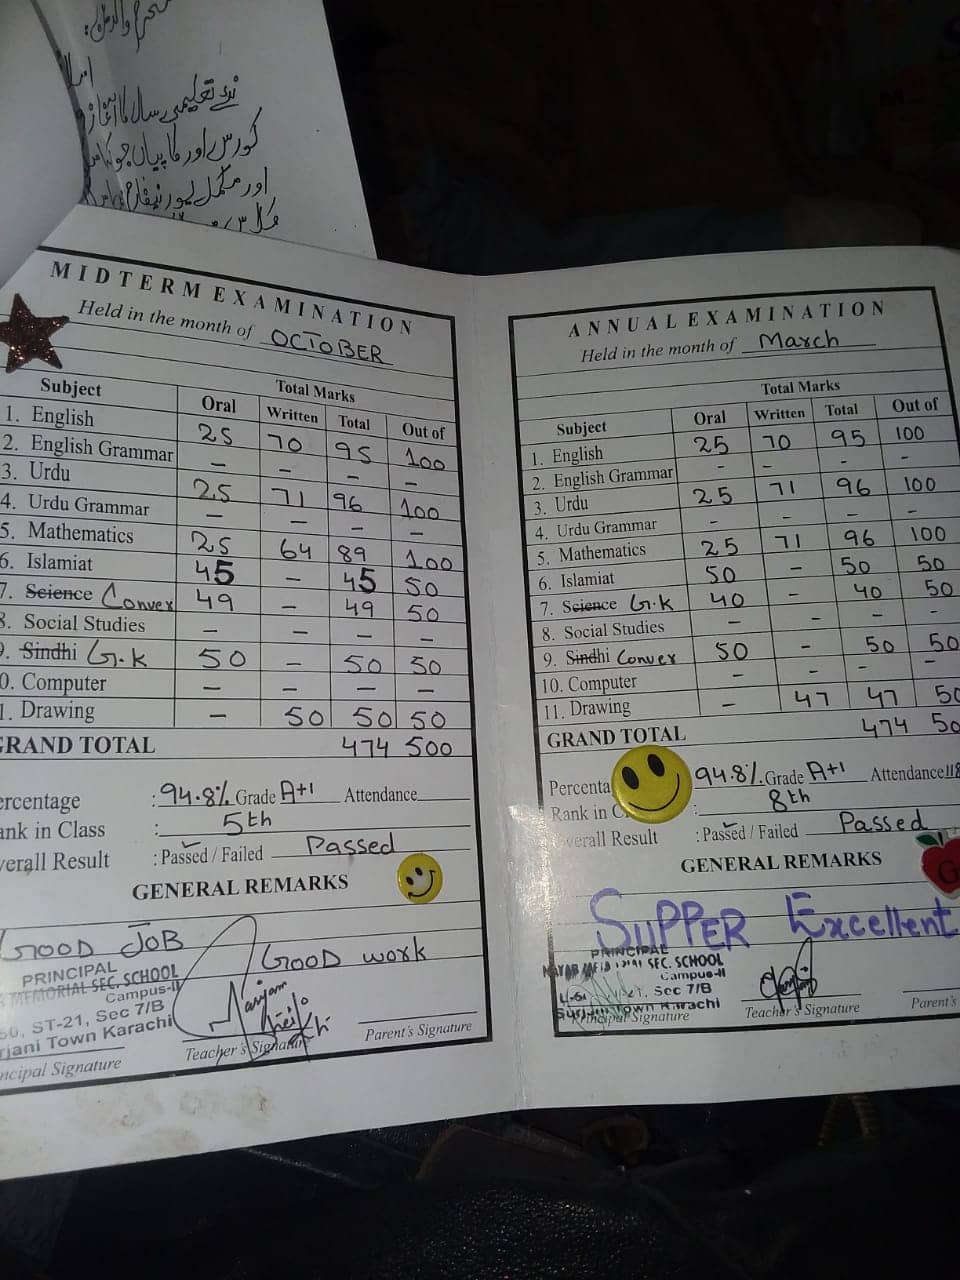 محترم والدین:
نئے تعلیمی سال کا آغاز
کورس اور کاپیاں جو کہ
اور مکمل یونیفارم
MIDTERM EXAMINATION
Held in the month of OCTOBER
Subject Total Marks
Oral Written Total Out of
1. English 25 70 95 100
2. English Grammar - - - -
3. Urdu 25 71 96 100
4. Urdu Grammar - - - -
5. Mathematics 25 64 89 100
6. Islamiat 45 - 45 50
7. Science Conver 49 - 49 50
8. Social Studies - - - -
9. Sindhi G.K 50 - 50 50
0. Computer - - - -
1. Drawing - 50 50 50
GRAND TOTAL 474 500
ercentage : 94.8% Grade A+1 Attendance
ank in Class : 5th
verall Result : Passed / Failed Passed
GENERAL REMARKS
GOOD JOB
GOOD work
PRINCIPAL
MEMORIAL SEC. SCHOOL
Campus-II
50, ST-21, Sec 7/B
rjani Town Karachi
ncipal Signature Teacher's Signature Parent's Signature
ANNUAL EXAMINATION
Held in the month of March
Total Marks
Subject Oral Written Total Out of
1. English 25 70 95 100
2. English Grammar - - - -
3. Urdu 25 71 96 100
4. Urdu Grammar - - - -
5. Mathematics 25 71 96 100
6. Islamiat 50 - 50 50
7. Science G.K 40 - 40 50
8. Social Studies - - - -
9. Sindhi Conver 50 - 50 50
10. Computer - - - -
11. Drawing - 47 47 50
GRAND TOTAL 474 50
Percenta 94.8% Grade A+1 Attendance 118
Rank in C : 8th
verall Result : Passed / Failed Passed
GENERAL REMARKS
SUPPER Excellent
PRINCIPAL
SEC. SCHOOL
Campus-II
Sec 7/B
Surjani Town Karachi
Principal Signature Teacher's Signature Parent's